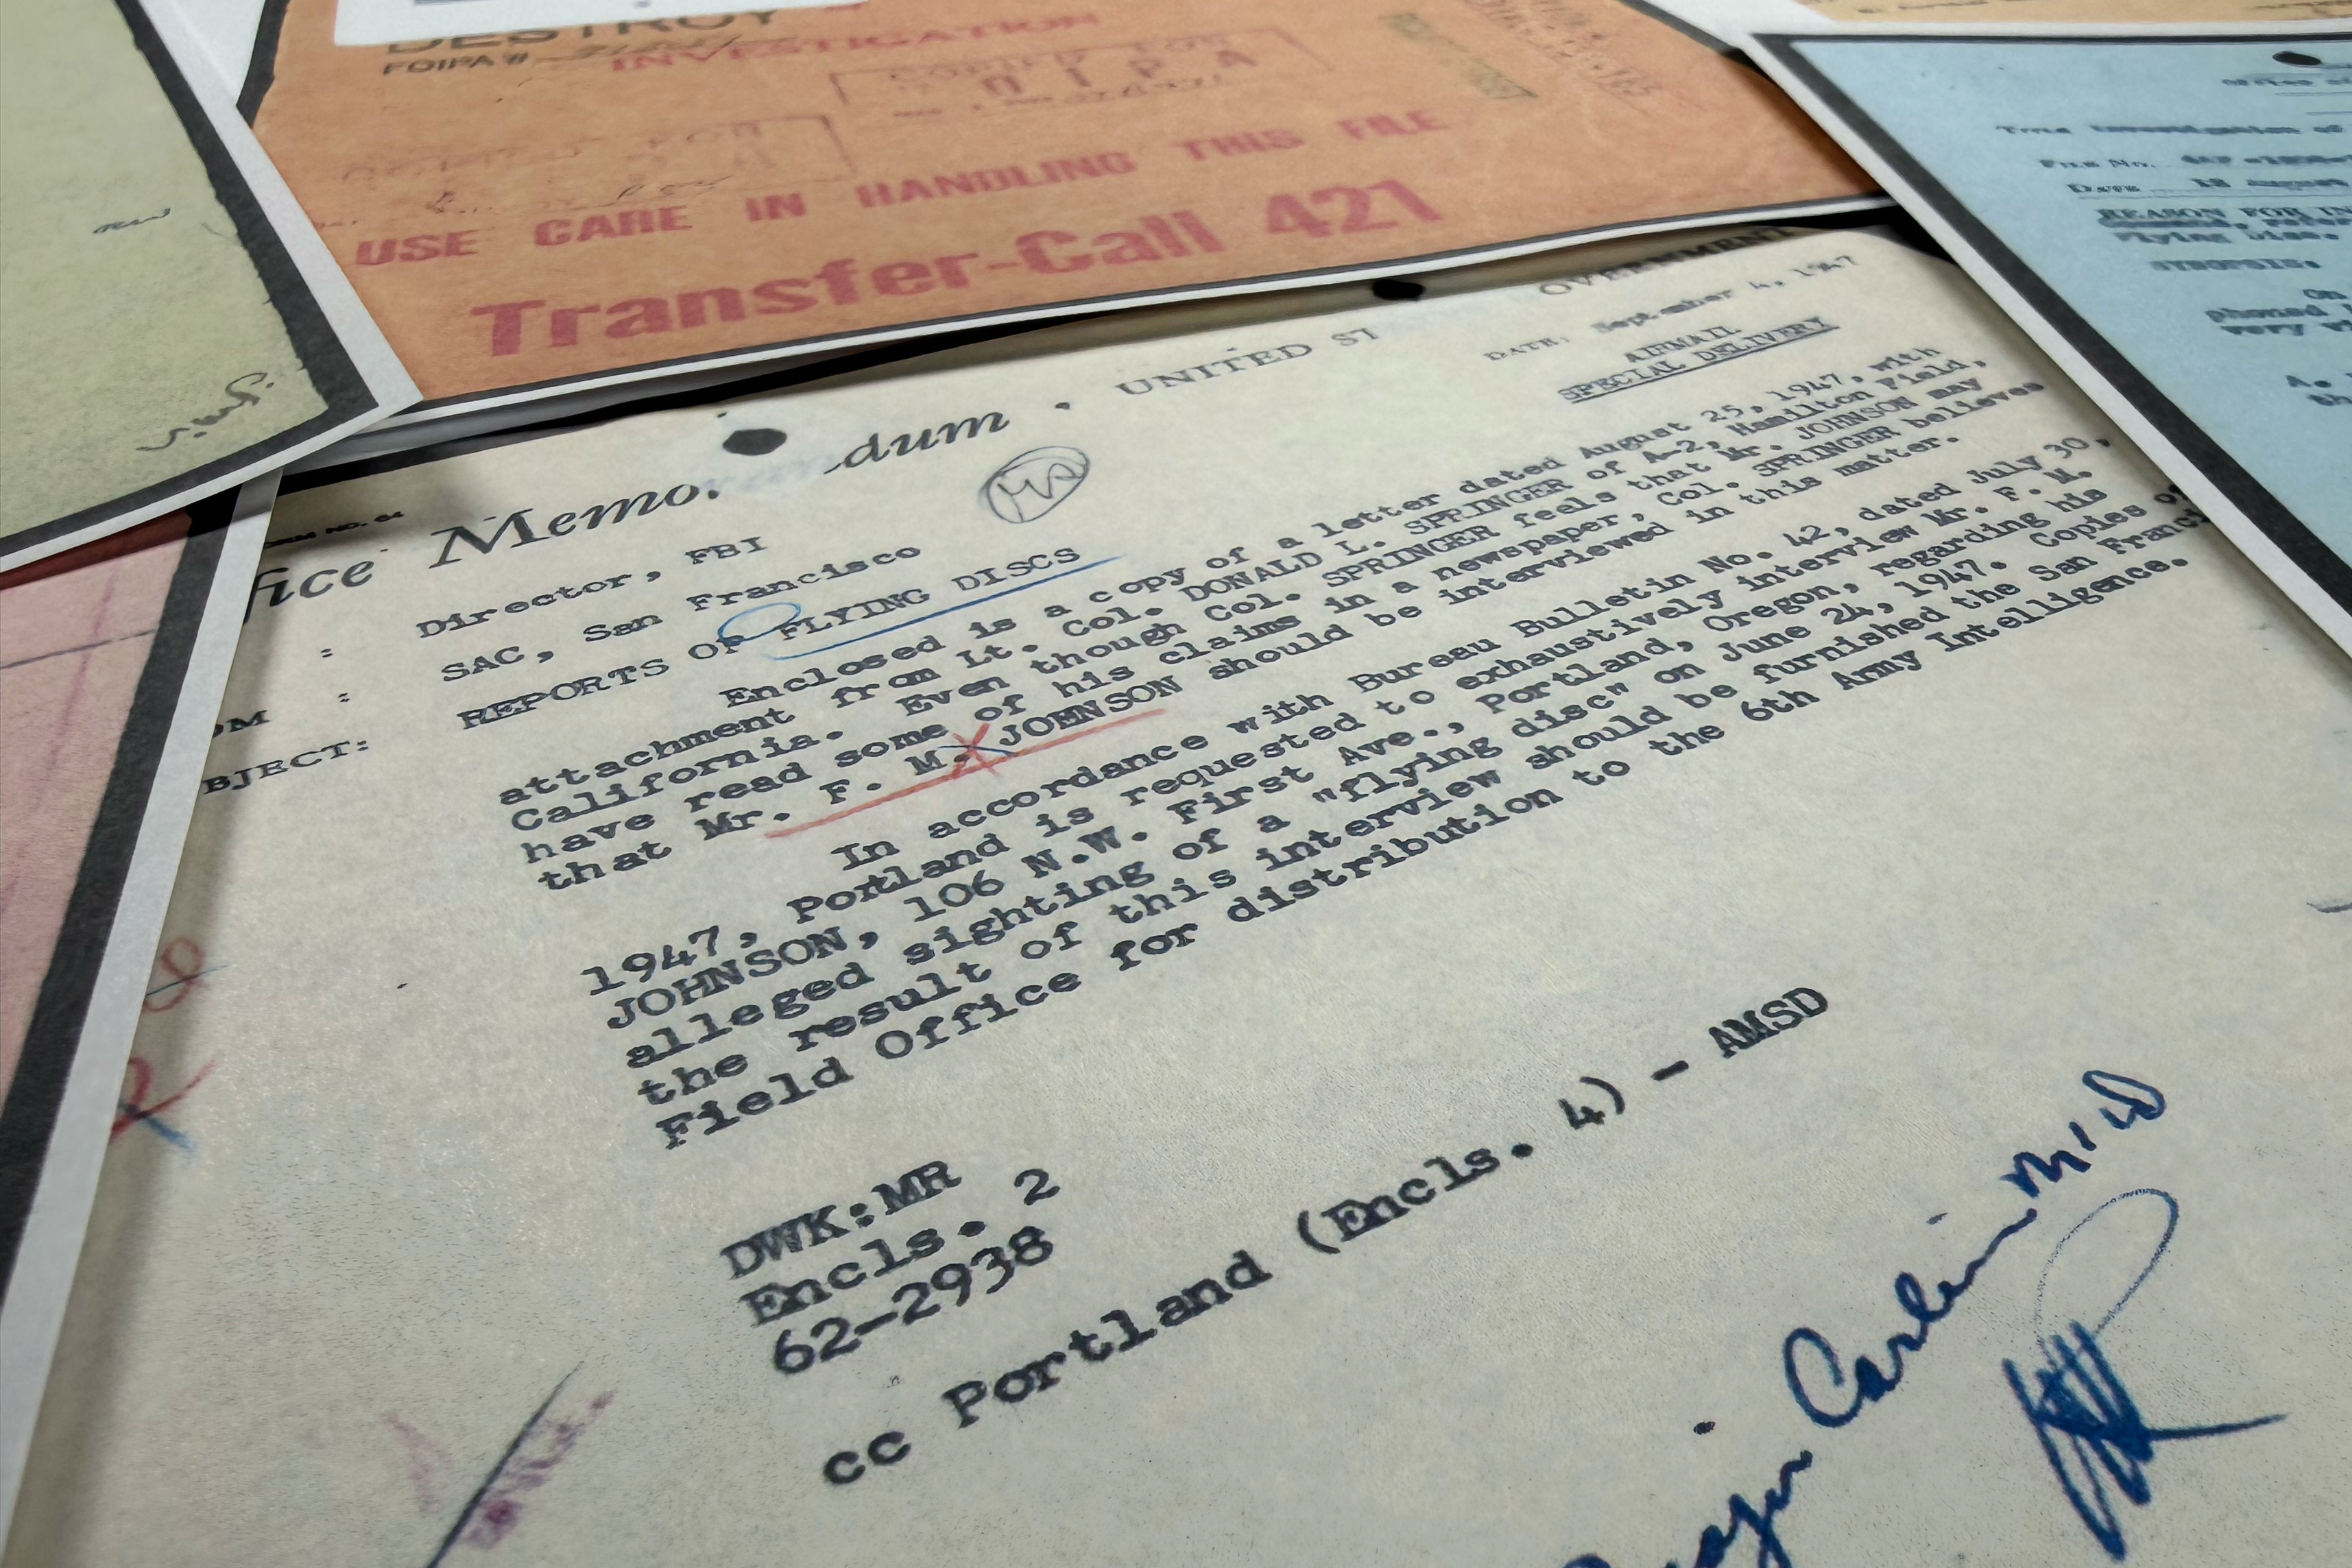 DESTROY
FOIPA #
INVESTIGATION
COPIED FOR
USE CARE IN HANDLING THIS FILE
Transfer-Call 421
File No.
Date
REASON FOR IN
SYNOPSIS:
On
phoned
very
A.
fice Memo. dum . UNITED ST OVERNMENT
: Director, FBI DATE: September 4, 1947
OM : SAC, San Francisco AIRMAIL
SPECIAL DELIVERY
BJECT: REPORTS OF FLYING DISCS
Enclosed is a copy of a letter dated August 25, 1947, with
attachment from Lt. Col. DONALD L. SPRINGER of A-2, Hamilton Field,
California. Even though Col. SPRINGER feels that Mr. JOHNSON may
have read some of his claims in a newspaper, Col. SPRINGER believes
that Mr. F. M. JOHNSON should be interviewed in this matter.
In accordance with Bureau Bulletin No. 42, dated July 30,
1947, Portland is requested to exhaustively interview Mr. F. M.
JOHNSON, 106 N.W. First Ave., Portland, Oregon, regarding his
alleged sighting of a "flying disc" on June 24, 1947. Copies of
the result of this interview should be furnished the San Franci
Field Office for distribution to the 6th Army Intelligence.
DWK:MR
Encls. 2
62-2938
cc Portland (Encls. 4) - AMSD